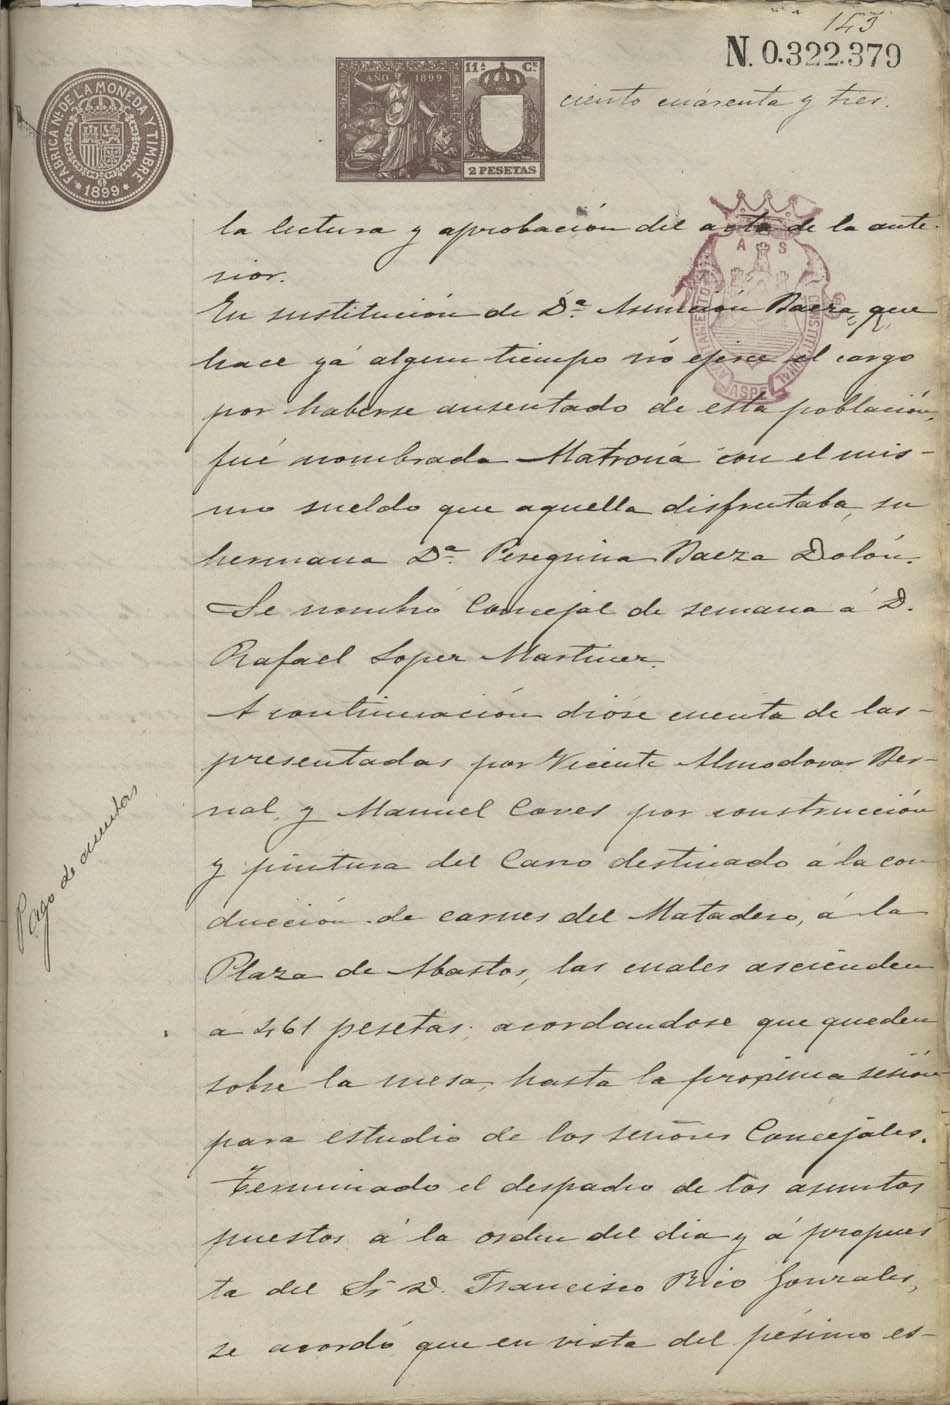 143
N. 0.322.379
FABRICA NL. DE LA MONEDA Y TIMBRE
* 1899 *
AÑO 1899
11ª Cª
2 PESETAS
ciento cuarenta y tres.
AYUNTAMIENTO CONSTITUCIONAL
A S
ASPE
la lectura y aprobación del acta de la ante-
rior.
En sustitución de Dª Asunción Baeza, que
hace yá algun tiempo nó ejerce el cargo
por haberse ausentado de esta población,
fué nombrada Matrona con el mis-
mo sueldo que aquella disfrutaba, su
hermana Dª Peregrina Baeza Dolón.
Se nombró Concejal de semana á D.
Rafael Loper Martiner.
A continuación dióse cuenta de las-
presentadas por Vicente Almodovar Ber-
nal, y Manuel Caves por construcción
y pintura del Carro destinado á la con
ducción de carnes del Matadero, á la
Plaza de Abastos, las cuales ascienden
á 461 pesetas; acordandose que queden
sobre la mesa, hasta la proxima sesión
para estudio de los señores Concejales.
Terminado el despacho de los asuntos
puestos á la orden del dia y á propues
ta del Sr D. Francisco Rico Gonzales,
se acordó que en vista del pésimo es-
Pago de cuentas